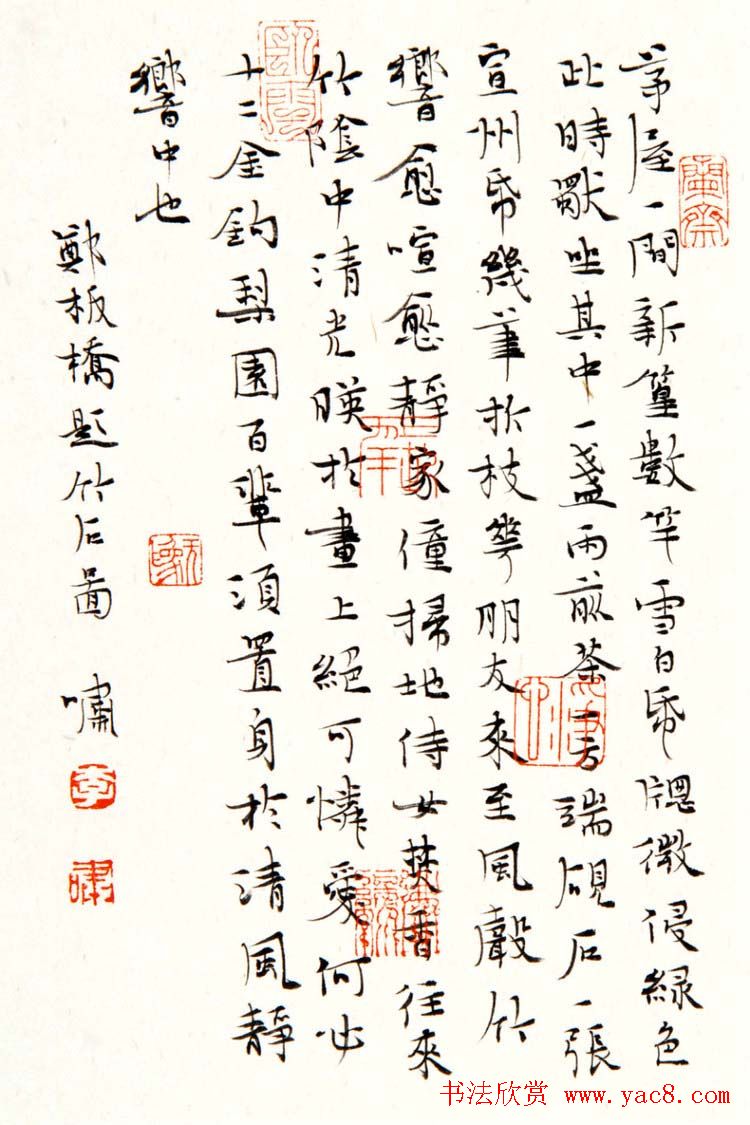 茅屋一間新篁數竿雪白帋牕微侵緑色
此時獨坐其中一盞雨前茶一方端硯石一張
宣州帋幾筆折枝華朋友來至風聲竹
響愈喧愈靜家僮掃地侍女焚香往來
竹陰中清光暎於畫上絕可憐愛何必
十二金釵梨園百輩須置身於清風靜
響中也
鄭板橋題竹石圖 嘯
李
嘯
书法欣赏 www.yac8.com